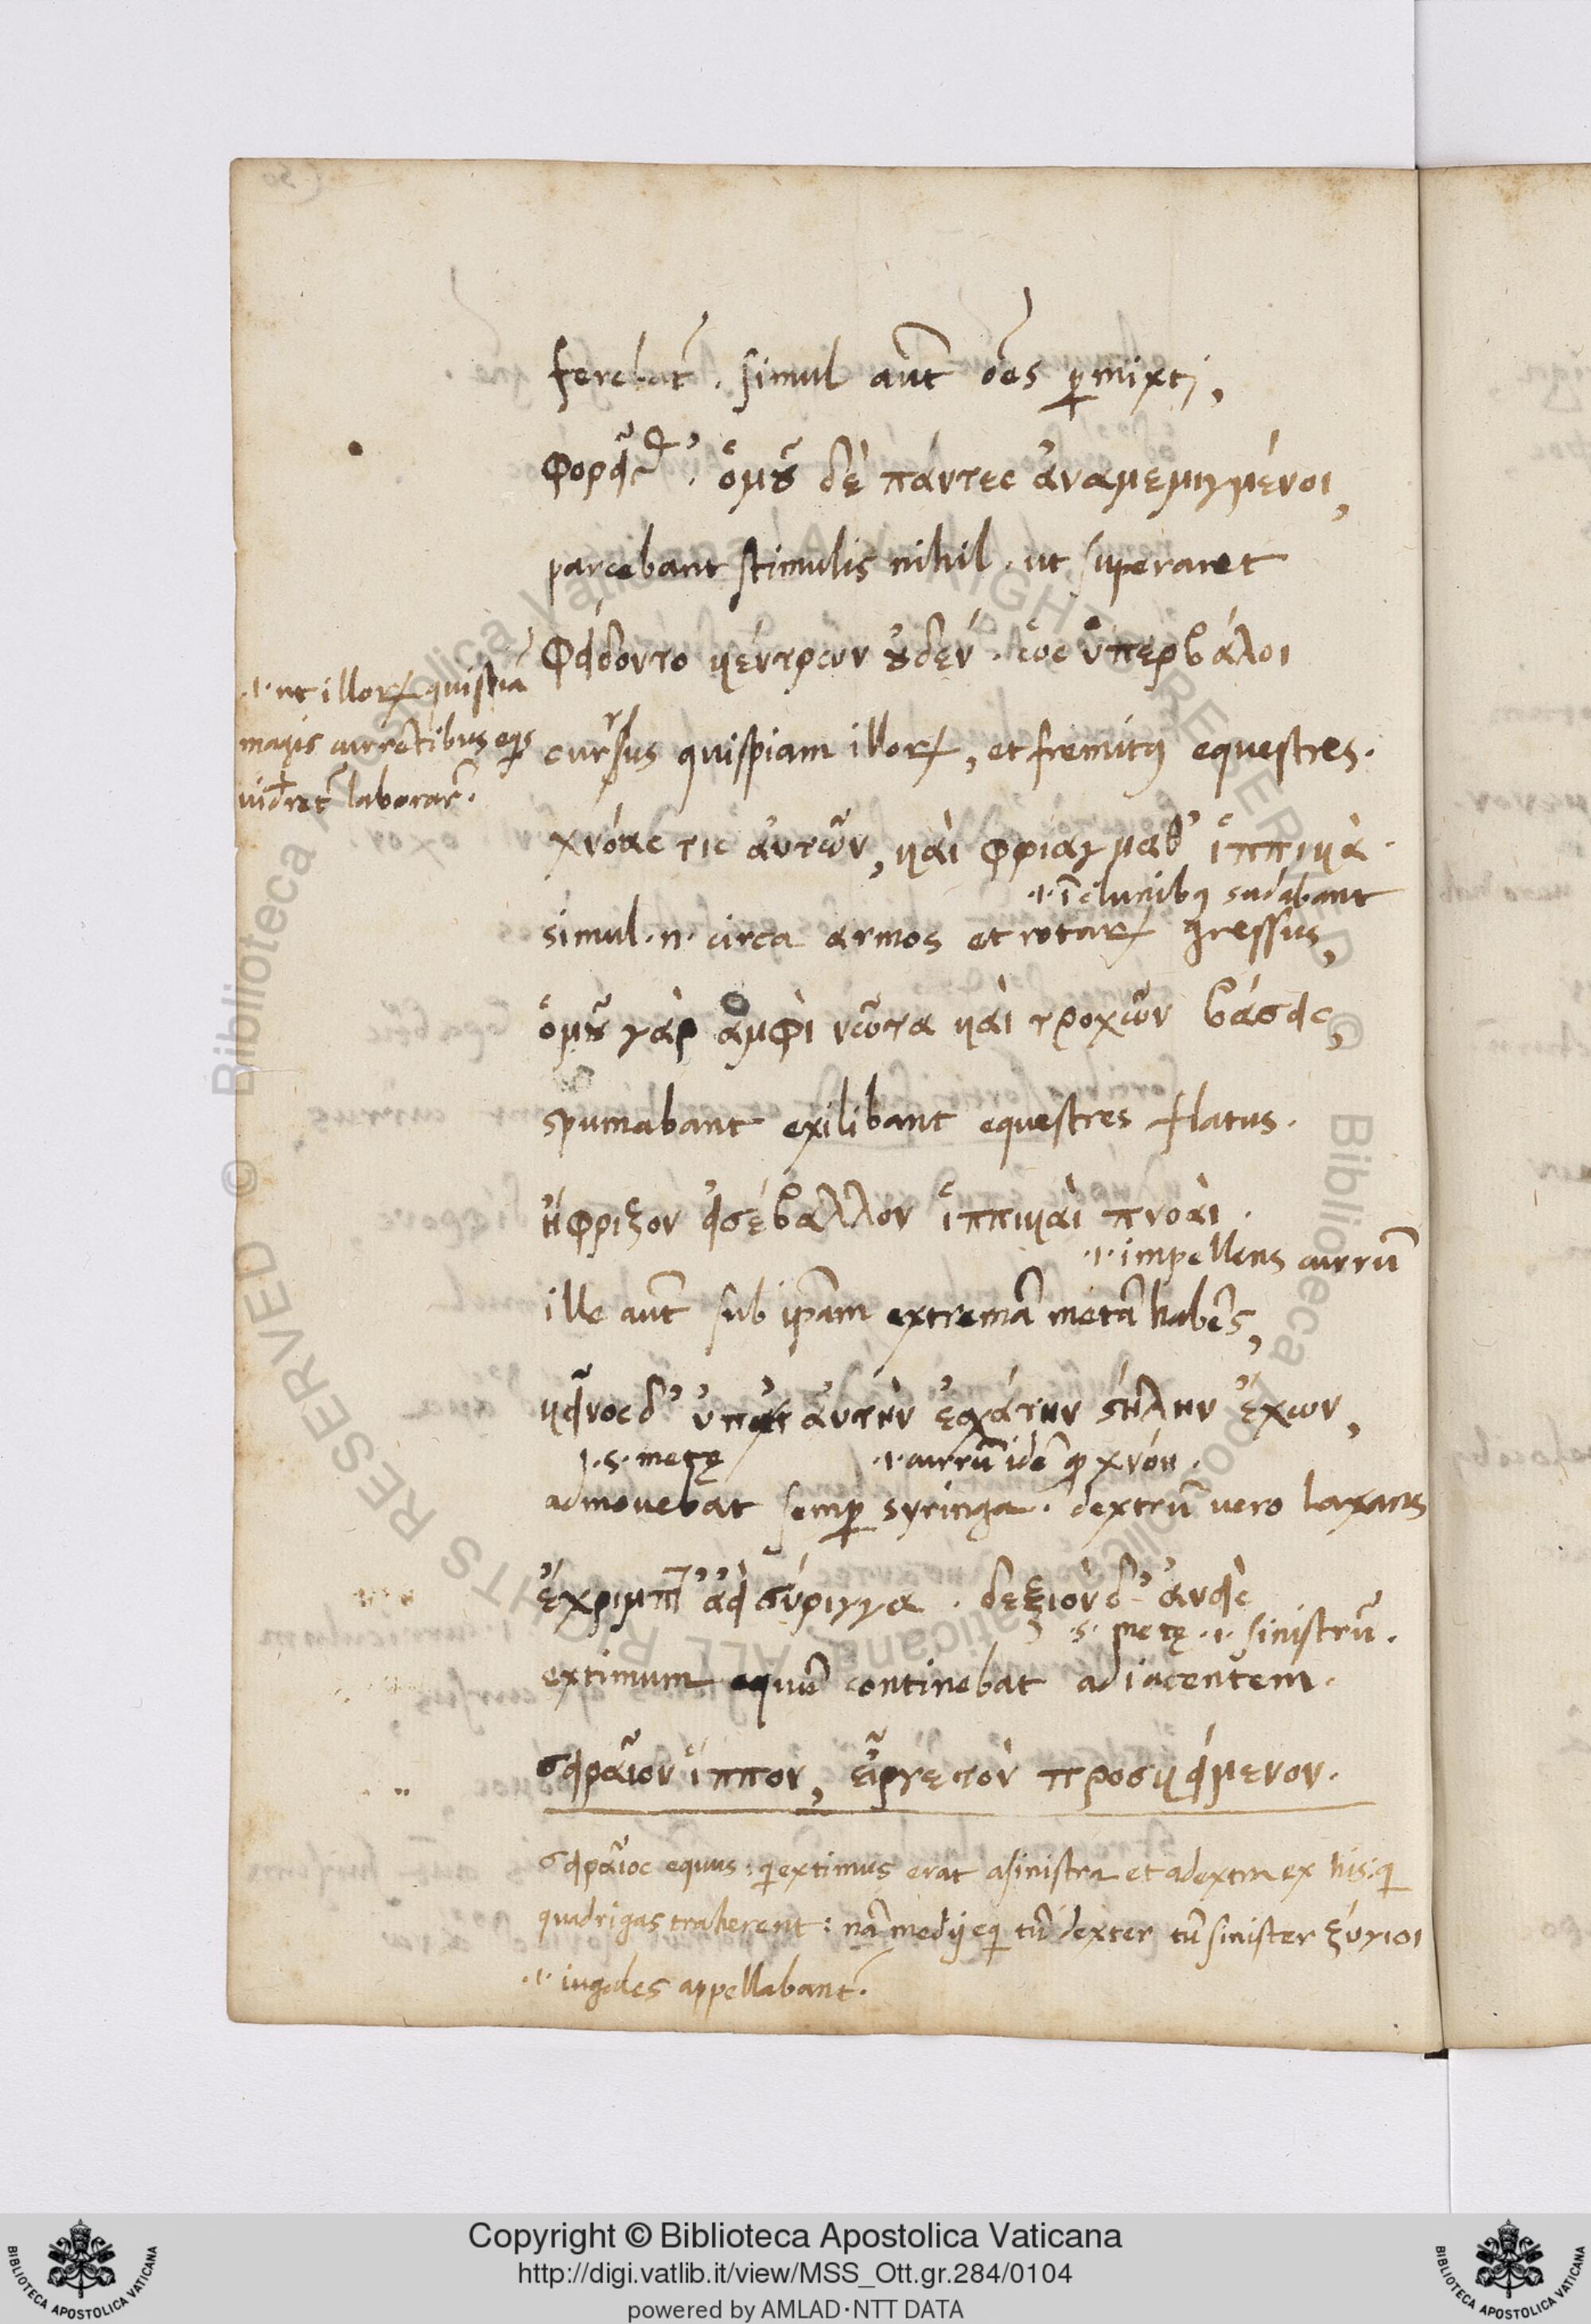 ferebat᷑. simul aut̃ oẽs ꝑmixti,
φορεῖθ᾽. ὁμοῦ δὲ πάντες ἀναμεμιγμένοι,
parcebant stimulis nihil. ut superaret
φείδοντο κέντρων οὐδέν. ὡς ὑπερβάλοι
.i. ut illoꝝ quispiã
magis currẽtibus eqs
laborar̃.
cursus quispiam illoꝝ, et fremitꝰ equestres.
χνόας τις αὐτῶν, καὶ φριάγμαθ᾽ ἱππικά.
.i. ĩ clunibꝰ sudabant
simul .n. circa armos et rotaꝝ gressus,
ὁμοῦ γὰρ ἀμφὶ νῶτα καὶ τροχῶν βάσεις,
spumabant exilibant equestres flatus.
ἤφριζον εἰσέβαλλον ἱππικαὶ πνοαί.
.i. impellens currũ
ille aut̃ sub ip̃am extremã metã habẽs,
κεῖνος δ᾽ ὑπ᾽ αὐτὴν ἐσχάτην στήλην ἔχων,
.i. s. metę
.i. currũ idẽ qđ χνόη.
admouebat semꝑ syringa. dextrũ uero laxans
ἔχριμπτ᾽ ἀεὶ σύριγγα. δεξιὸν δ᾽ ἀνεὶς
.s. metę .i. sinistrũ.
extimum equũ continebat adiacentem.
σειραῖον ἵππον, εἶργε τὸν προσκείμενον.
σειραῖος equus: qi extimus erat a sinistra et a dextra ex his: qi
quadrigas traherent: nã medij eqi tũ dexter tũ sinister ζύγιοι
.i. iugales appellabant᷑.
Copyright © Biblioteca Apostolica Vaticana
http://digi.vatlib.it/view/MSS_Ott.gr.284/0104
powered by AMLAD·NTT DATA